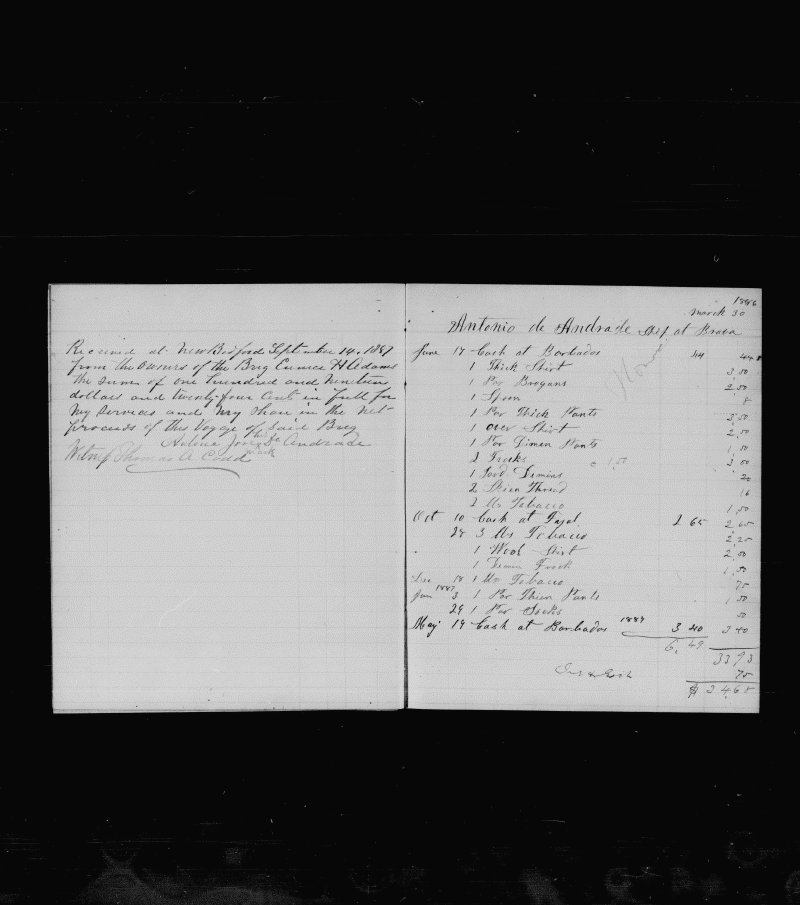 Received at New Bedford September 14, 1887
from the owners of the Brig Eunice H Adams
the sum of one hundred and nineteen
dollars and twenty-four cent in full for
my services and my share in the net
proceeds of this Voyage of said Brig
his
Andrade
mark
Witness Thomas A Cond
1886
March 30
Antonio de Andrade Ship at Brava
June 17 Cash at Barbados 44 44
1 Thick Shirt 3,50
1 Par Brogans 2,50
1 Spoon 8
1 Par Thick Pants 3,50
1 over Shirt 2,50
1 Par Dimen Pants 1,50
2 Frocks 1,50 3,00
1 Dimins 20
2 Skien Thread 16
2 lbs Tobacco 1,50
Oct 10 Cash at Fayal 2 65 2,65
28 3 lbs Tobacco 2,25
1 Wool Shirt 2,50
1 Dimen Frock 1,50
Dec 18 1 lb Tobacco 75
Jan 1887 3 1 Par Thien Pants 1,50
29 1 Par Socks 50
May 19 Cash at Barbados 1887 3 40 3 40
6,49 33 93
75
$ 34,68